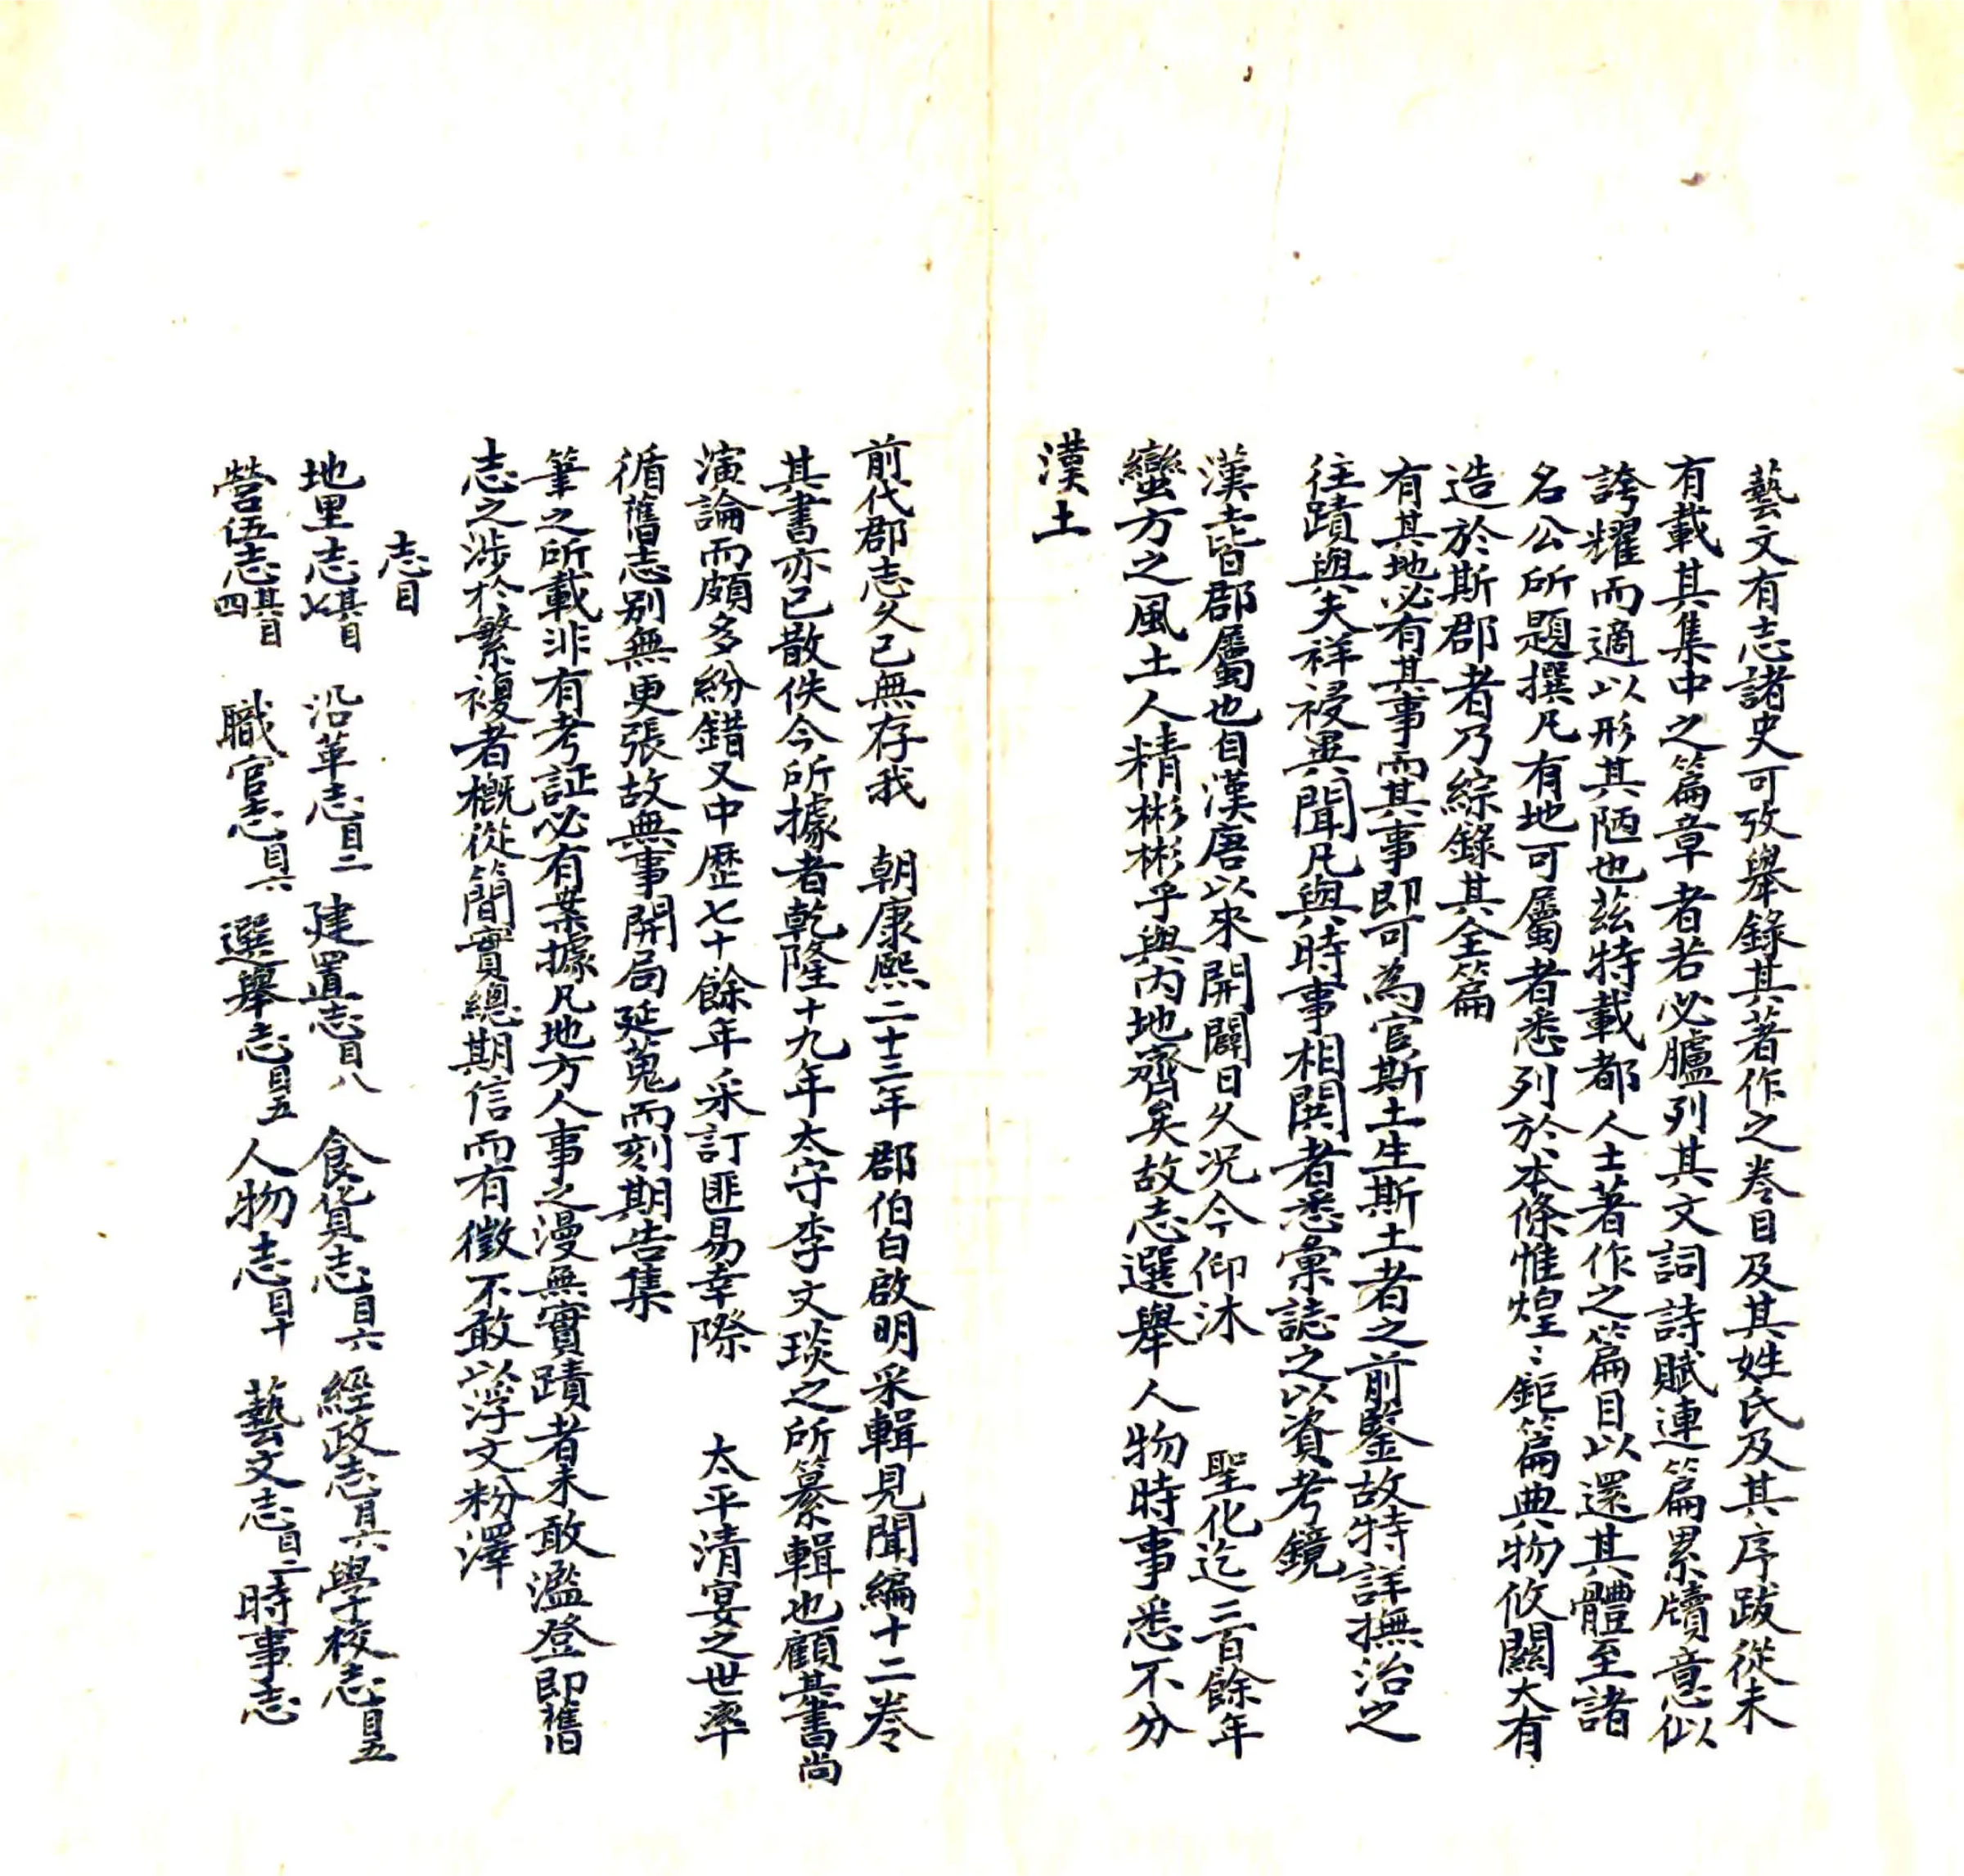 藝文有志諸史可攷舉錄其著作之卷目及其姓氏及其序跋從未
有載其集中之篇章者若必臚列其文詞詩賦連篇累牘意似
誇耀而適以形其陋也茲特載都人士著作之篇目以還其體至諸
名公所題撰凡有地可屬者悉列於本條惟煌〻鉅篇典物攸關大有
造於斯郡者乃綜錄其全篇
有其地必有其事而其事即可為官斯土生斯土者之前鑒故特詳撫治之
往蹟與夫祥祲異聞凡與時事相関者悉彙誌之以資考鏡
漢土皆郡屬也自漢唐以來開闢日久况今仰沐　聖化迄二百餘年
蠻方之風土人精彬彬乎與內地齊矣故志選舉人物時事悉不分
漢土
前代郡志久已無存我　朝康熙二十三年郡伯白啟明采輯見聞編十二卷
其書亦已散佚今所據者乾隆十九年太守李文琰之所纂輯也顧其書尚
演論而頗多紛錯又中歷七十餘年采訂匪易幸際　太平清宴之世率
循舊志別無更張故無事開局延蒐而刻期告集
筆之所載非有考証必有案據凡地方人事之漫無實蹟者未敢濫登即舊
志之涉於繁複者概從簡實總期信而有徵不敢以浮文粉澤
志目
地里志其目七　沿革志目二　建置志目八　食貨志目六　經政志其目六　學校志目五
營伍志其目四　職官志其目六　選舉志其目五　人物志目十　藝文志目二　時事志